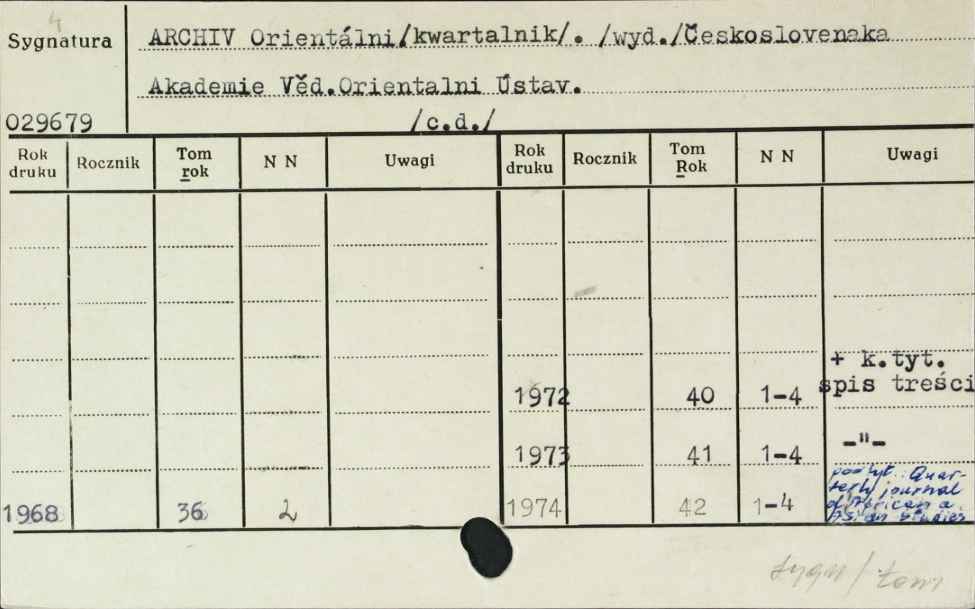 4
Sygnatura
ARCHIV Orientální/kwartalnik/. /wyd./Československa
Akademie Věd.Orientalni Ústav.
029679
/c.d./
Rok druku Rocznik Tom rok N N Uwagi Rok druku Rocznik Tom Rok N N Uwagi
+ k.tyt.
1972 40 1-4 spis treści
1973 41 1-4 -"-
podtyt. Quar-
terly journal
of African a.
Asian studies
1968 36 2 1974 42 1-4